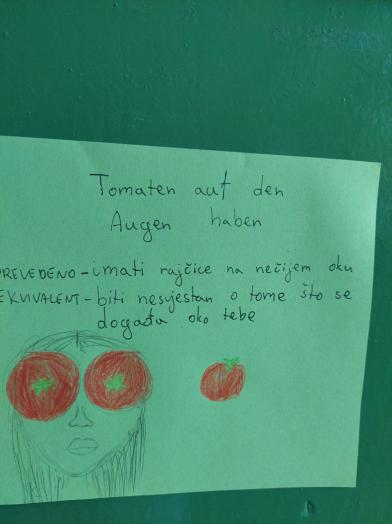 Tomaten auf den
Augen haben
PREVEDENO - imati rajčice na nečijem oku
EKVIVALENT - biti nesvjestan o tome što se
događa oko tebe